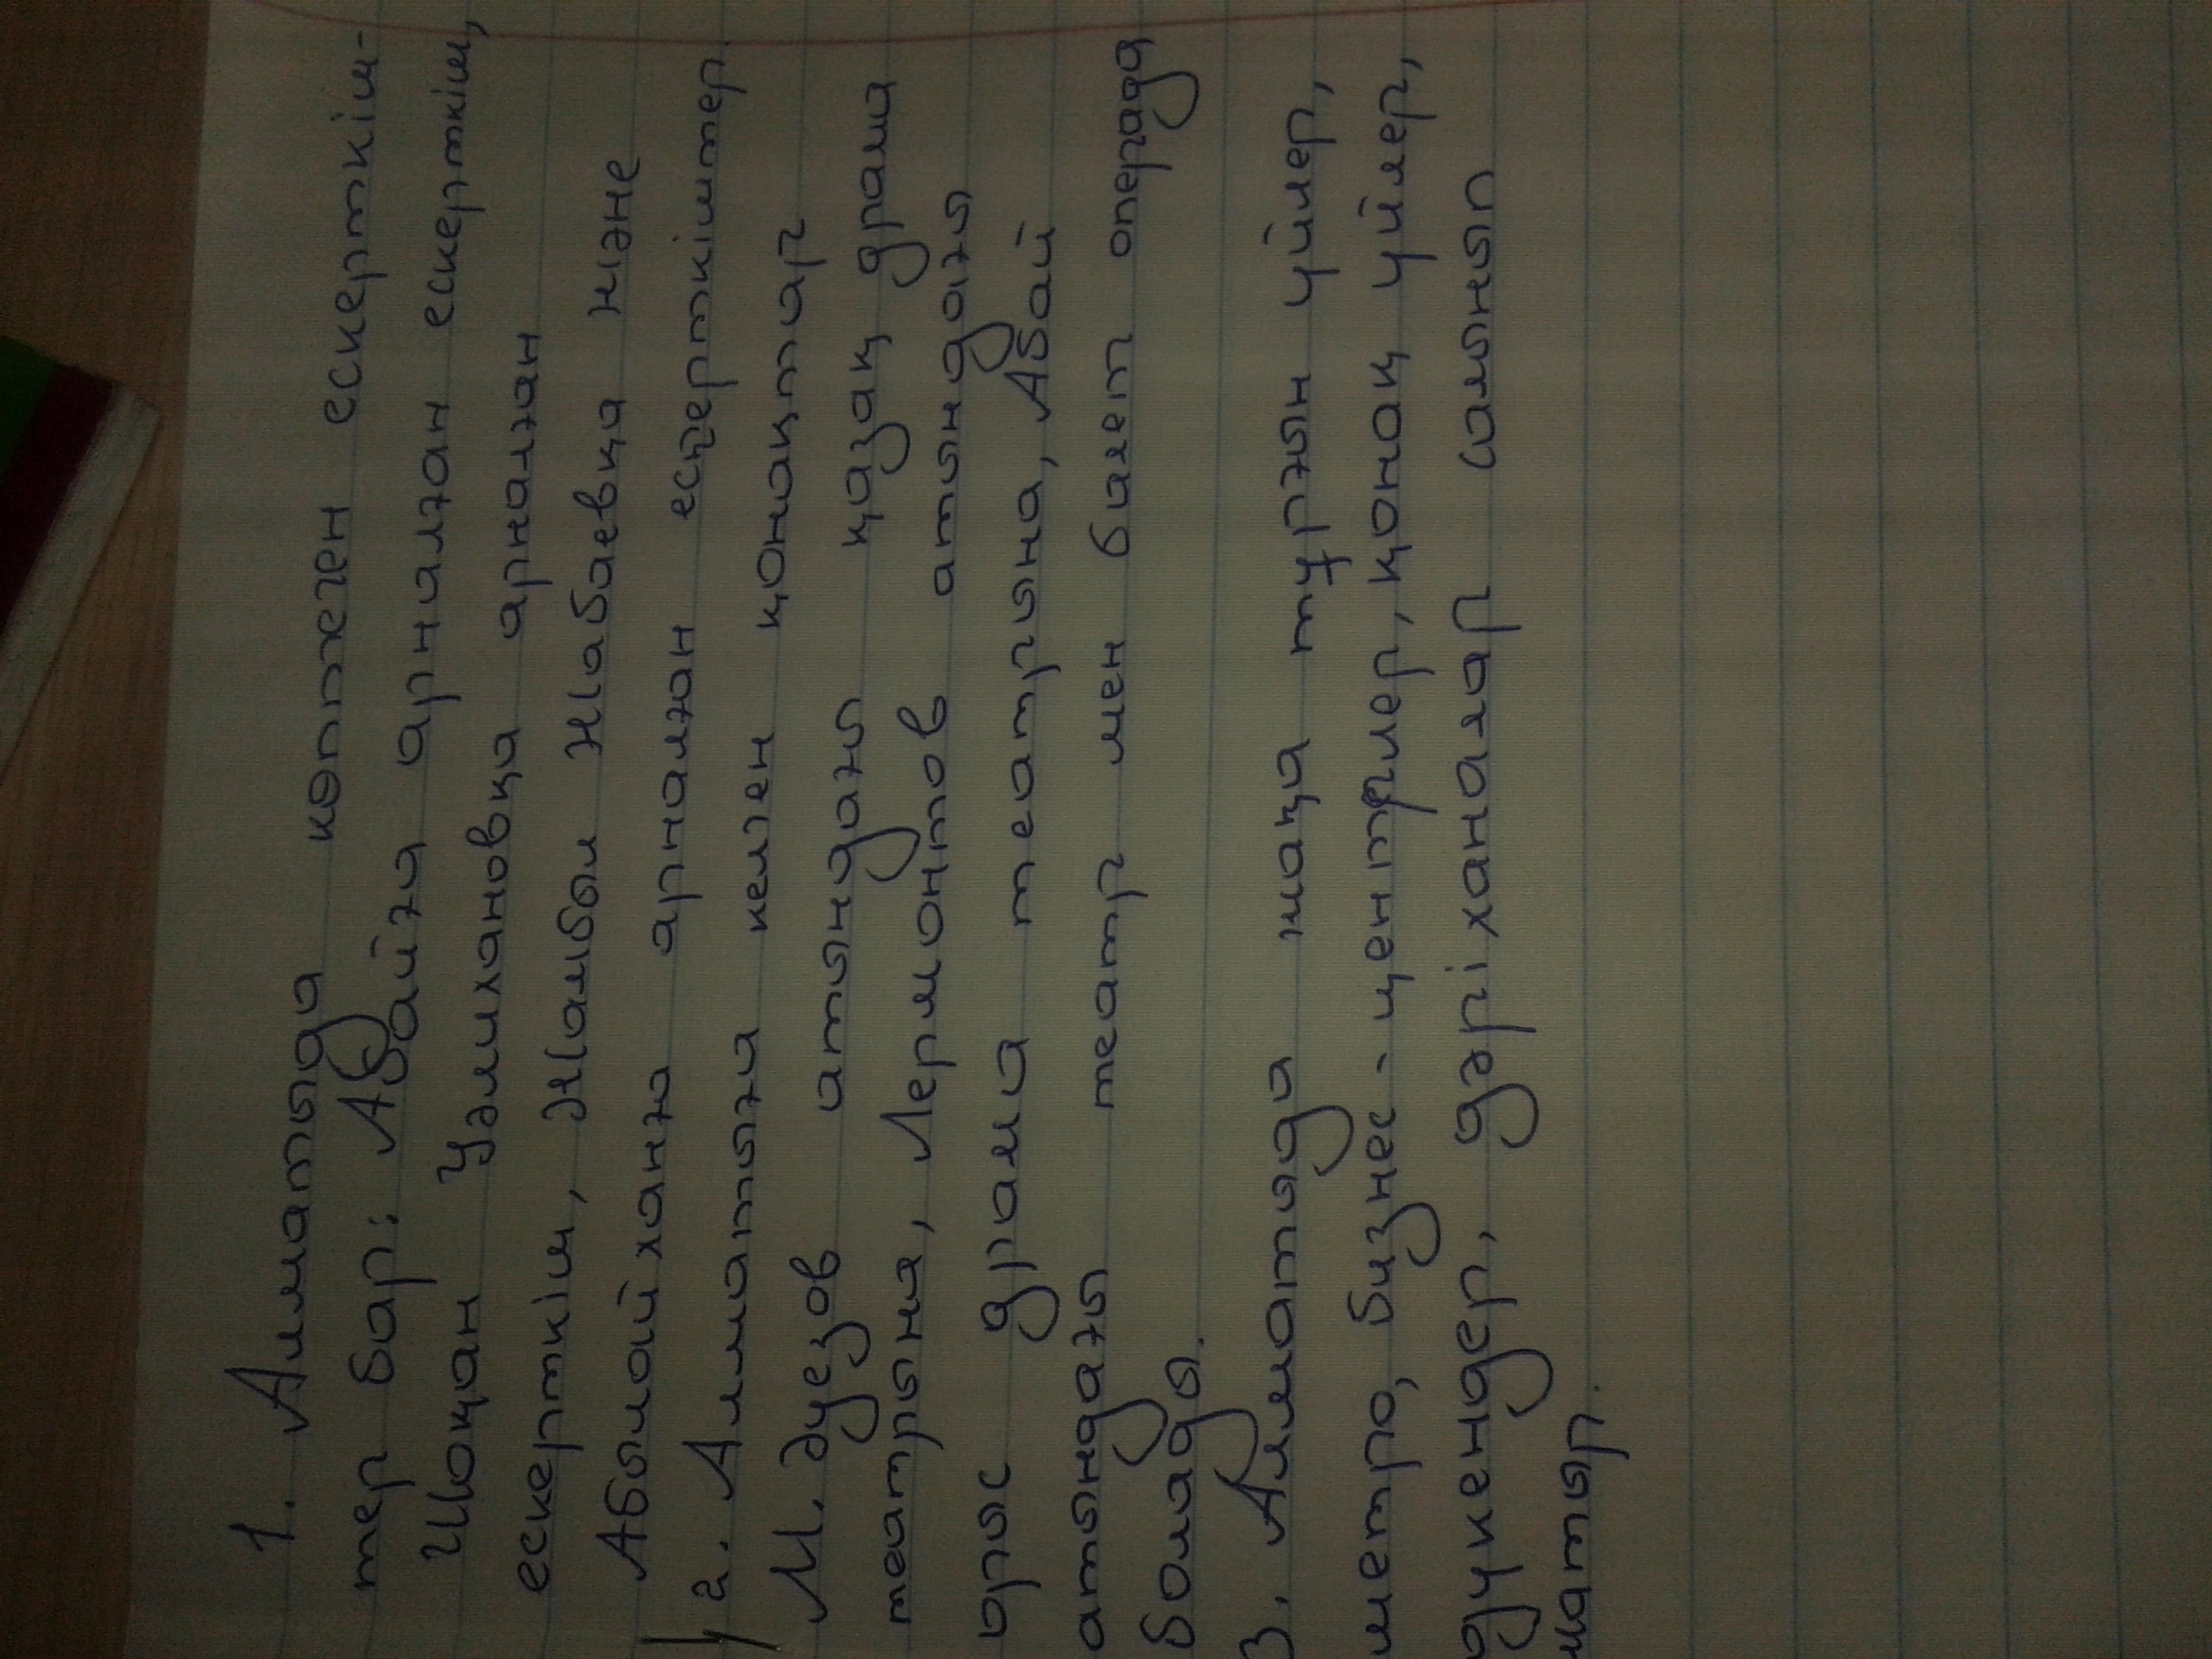 1. Алматыда көптеген ескерткіш-
тер бар: Абайға арналған ескерткіш,
Шоқан Уәлихановқа арналған
ескерткіш, Жамбыл Жабаевқа және
Абылайханға арналған ескерткіштер.
2. Алматыға келген қонақтар
М. Әуезов атындағы қазақ драма
театрына, Лермонтов атындағы
орыс драма театрына, Абай
атындағы театр мен балет операда
болады.
3. Алматыда жаңа тұрғын үйлер,
метро, бизнес-центрлер, қонақ үйлер,
дүкендер, дәріханалар салынып
жатыр.